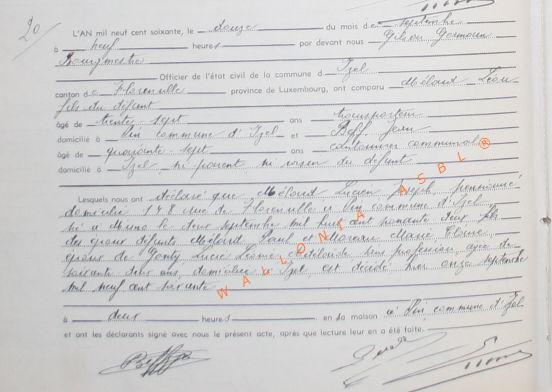 20/
L'AN mil neuf cent soixante, le douze du mois de septembre
à neuf heures par devant nous Gilson Germain
Bourgmestre
Officier de l'état civil de la commune d'Izel
canton de Florenville province de Luxembourg, ont comparu Méloud Léon
fils du défunt
âgé de trente-sept ans transporteur
domicilié à Pin commune d'Izel et Jean
âgé de quarante-sept ans cantonnier communal
domicilié à Izel ni parent, ni voisin du défunt
Lesquels nous ont déclaré que Méloud Lucien Joseph, pensionné
domicilié 148 rue de Florenville à Pin commune d'Izel
né à Muno le deux septembre mil huit cent nonante deux, fils
des époux défunts Méloud Paul et Marie
époux de Lucie sans profession, âgée de
soixante ans, domiciliée à Izel, est décédé hier onze septembre
mil neuf cent soixante
à deux heures en sa maison à Pin commune d'Izel
et ont les déclarants signé avec nous le présent acte, après que lecture leur en a été faite.
WALLONIA ASBL ®